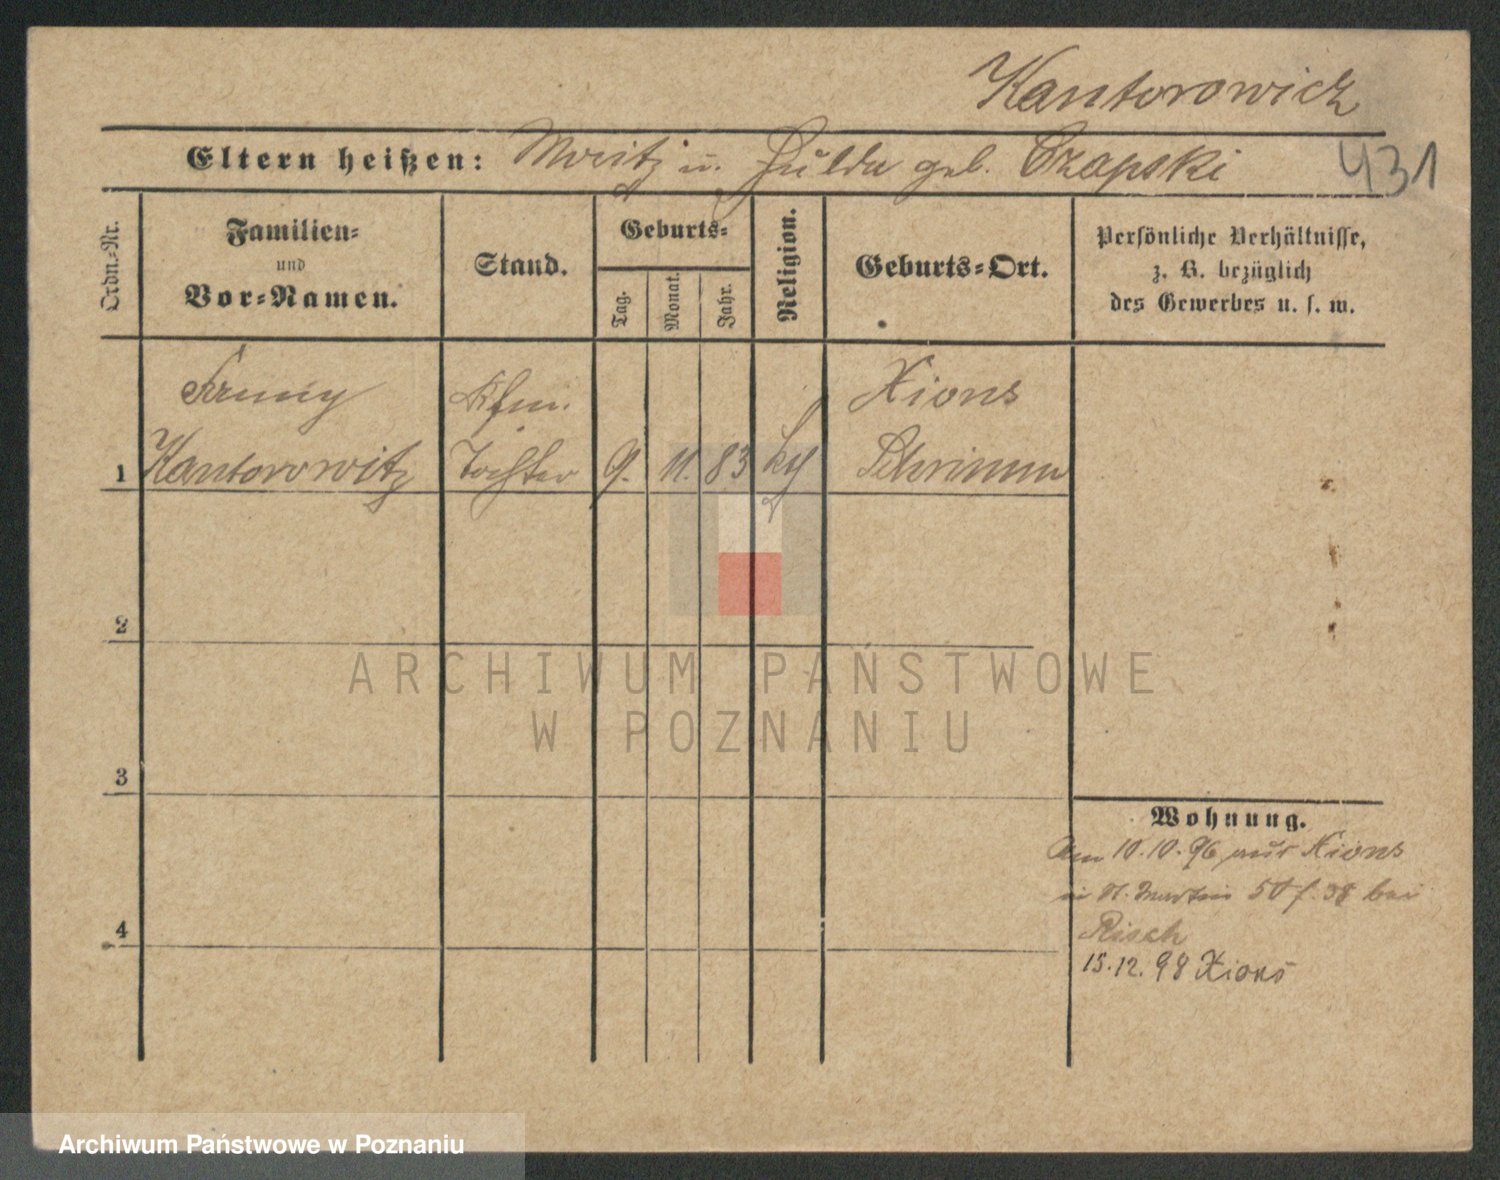 Kantorowicz
Eltern heißen: Moritz u. Hulda geb. Czapski
431
Ordn.-Nr.
Familien-
und
Vor-Namen.
Stand.
Geburts-
Tag.
Monat.
Jahr.
Religion.
Geburts-Ort.
Persönliche Verhältnisse,
z. B. bezüglich
des Gewerbes u. s. w.
Fanny
Kfm.
Xions
1 Kantorowitz Tochter 9. 11. 83 Schrimm
2
ARCHIWUM PAŃSTWOWE
W POZNANIU
3
Wohnung.
Am 10.10.96 aus Xions
in St. Martin bei
4
Risch
15.12.98 Xions
Archiwum Państwowe w Poznaniu